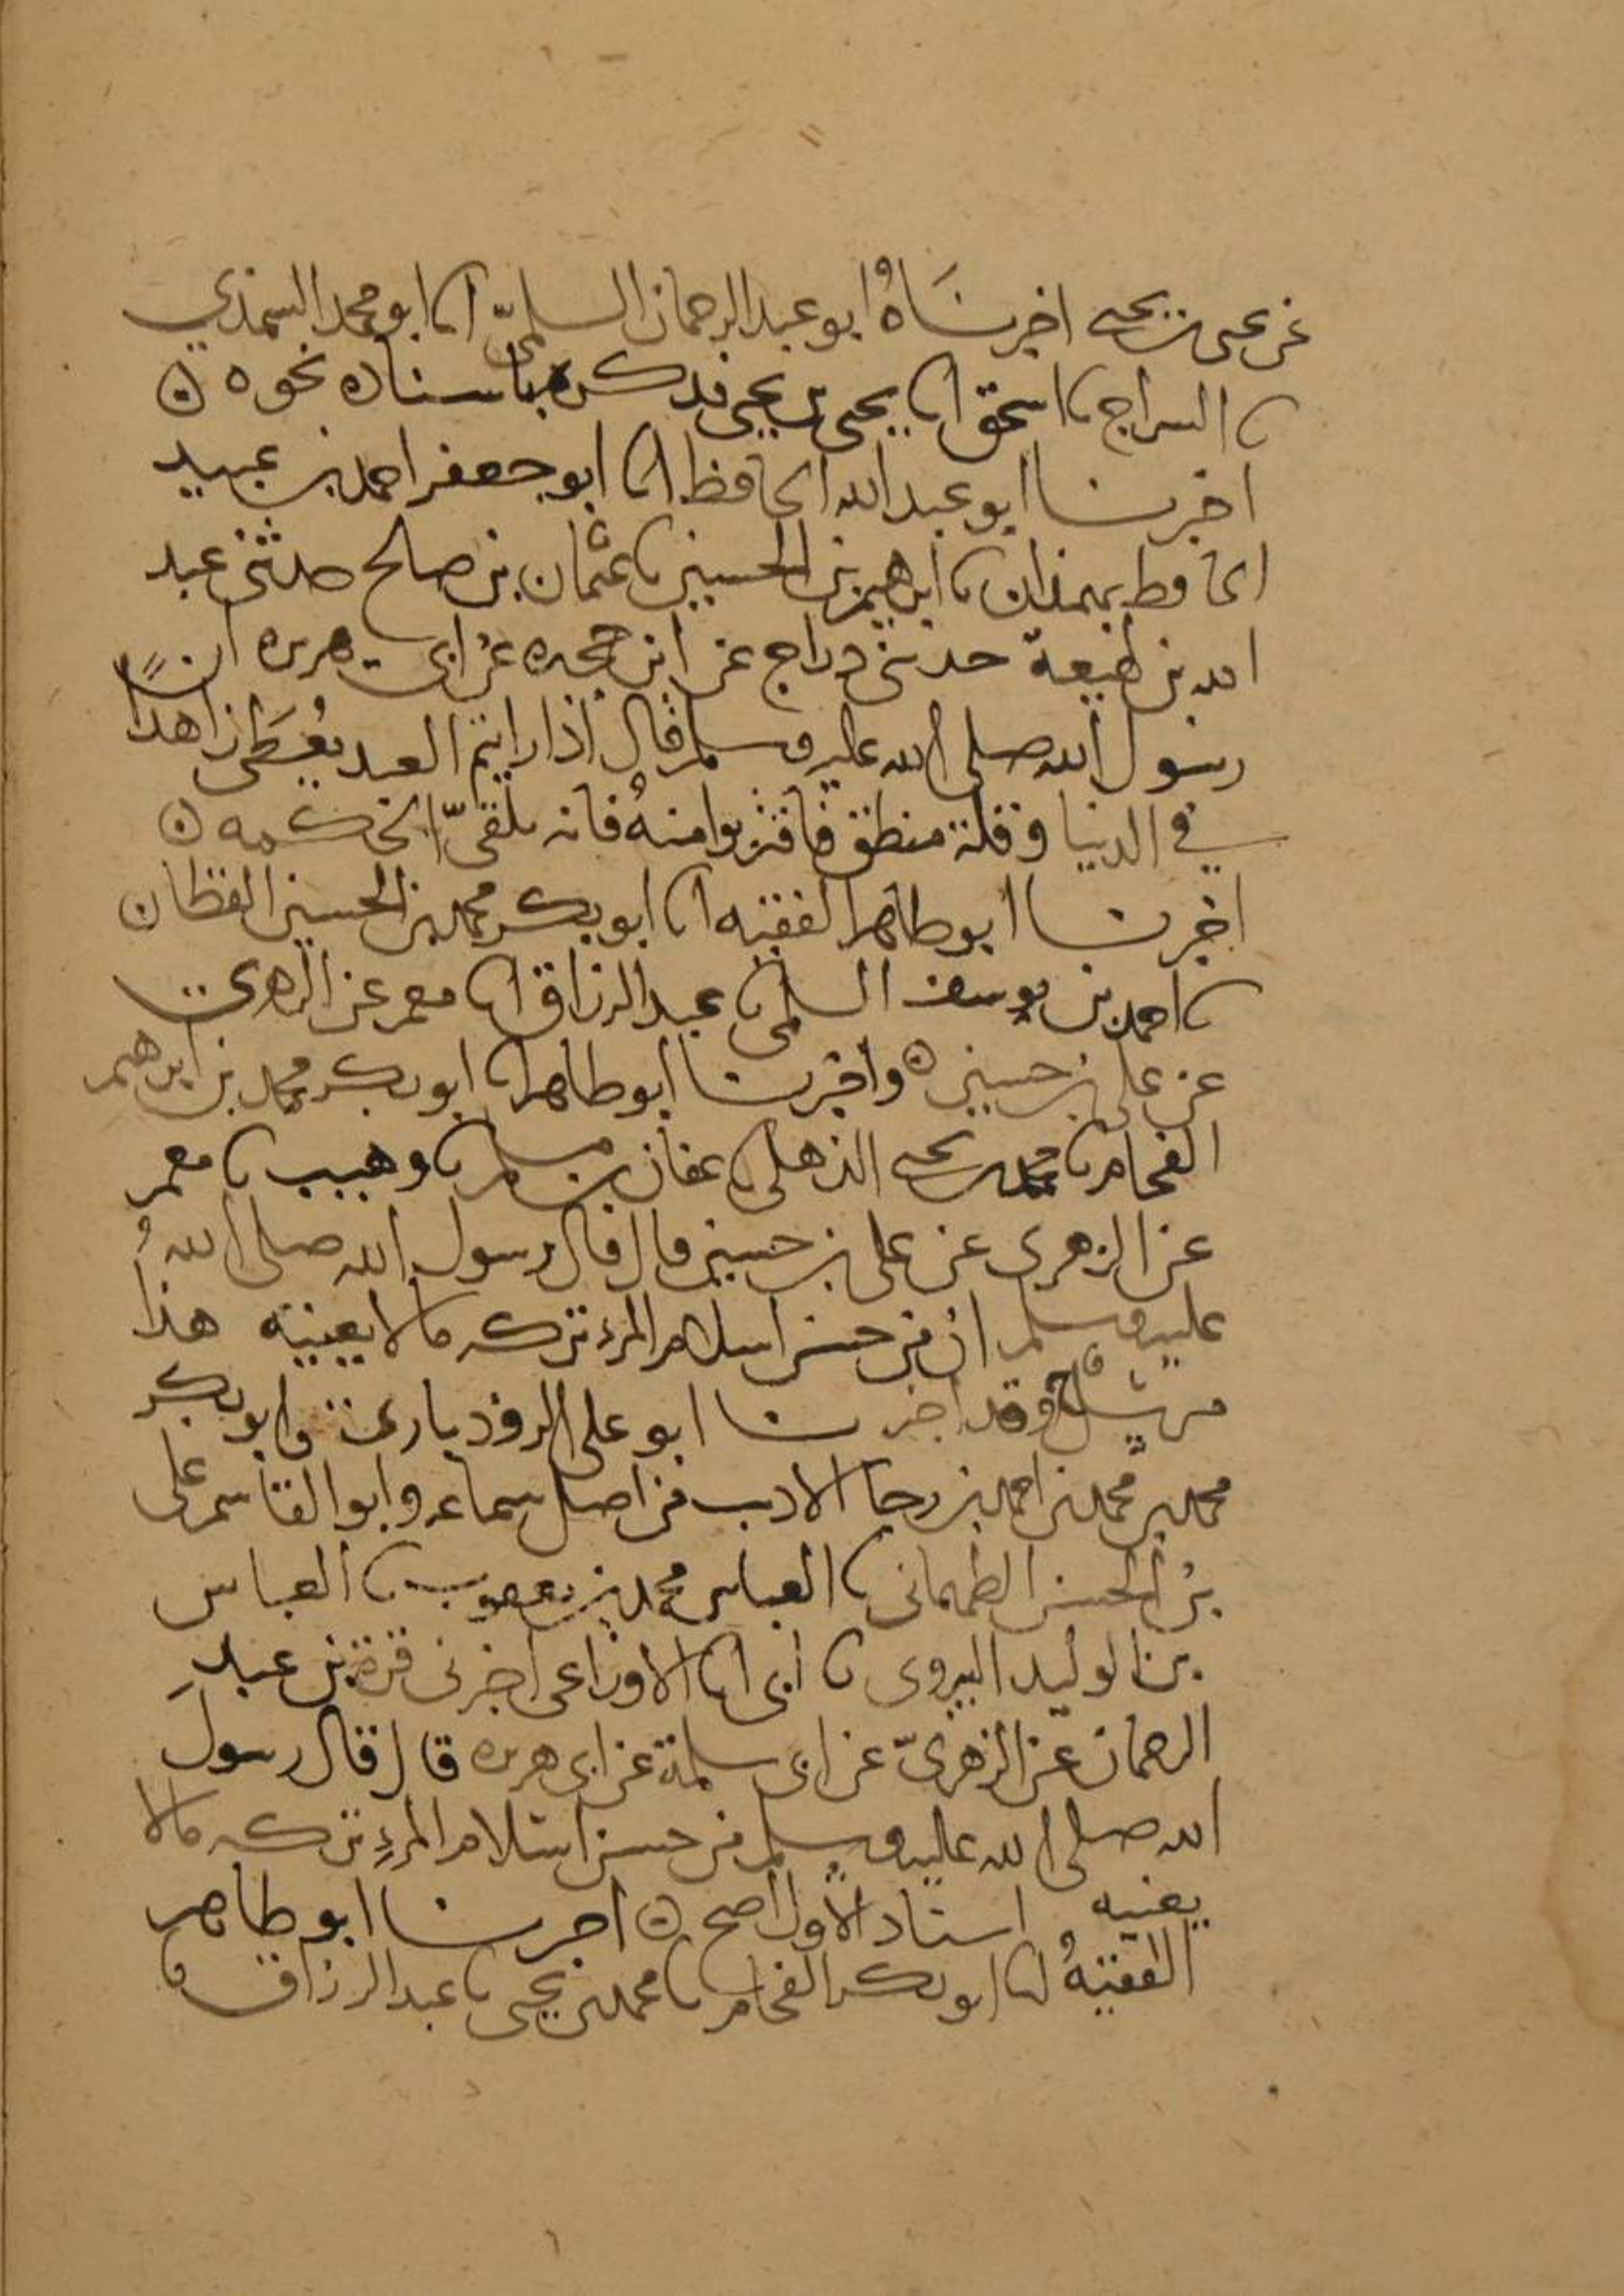 عن يحيى بن يحيى اخبرناهُ ابو عبد الرحمان السلميّ انا ابو محمد السمذي
نا السراج نا اسحق انا يحيى بن يحيى فذكره باسناده نحوه ه
اخبرنا ابو عبد الله الحافظ انا ابو جعفر احمد بن عبيد
الحافظ بهمذان نا ابرهيم بن الحسين نا عثمان بن صالح حدثني عبد
الله بن لهيعة حدثني دراج عن ابن حجيره عن ابي هريره ان
رسول الله صلى الله عليه وسلم قال اذا رايتم العبد يُعطَى زاهدًا
في الدنيا وقلة منطق فاقتربوا منهُ فانه يلقىّ الحكمه ه
اخبرنا ابو طاهر الفقيه انا ابو بكر محمد بن الحسين القطان
نا احمد بن يوسف السلمي نا عبد الرزاق انا معمر عن الزهري
عن علي بن حسين ه واخبرنا ابو طاهر انا ابو بكر محمد بن ابرهيم
الفحام نا محمد بن يحيى الذهلي نا عفان بن مسلم نا وهيب نا معمر
عن الزهري عن علي بن حسين قال قال رسول الله صلى اللهُ
عليه وسلم ان من حسن اسلام المرء تركه ما لا يعينيه هذا
مرسل وقد اخبرنا ابو علي الروذباري وابو بكر
محمد بن محمد بن احمد بن رجا الاديب من اصل سماعه وابو القاسم علي
بن الحسن الطهماني نا العباس محمد بن يعقوب نا العباس
بن الوليد البيروتي نا ابي انا الاوزاعي اخبرني قرة بن عبدِ
الرحمان عن الزهريّ عن ابي سلمة عن ابي هريره قال قال رسول
الله صلى الله عليه وسلم من حسن اسلام المرءِ تركه ما لا
يعنيه اسناد الاول اصح ه اخبرنا ابو طاهر
الفقيهُ انا ابو بكر الفحام نا محمد بن يحيى نا عبد الرزاق